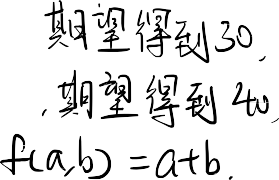 期望得到30,
,期望得到40,
f(a,b)=a+b.